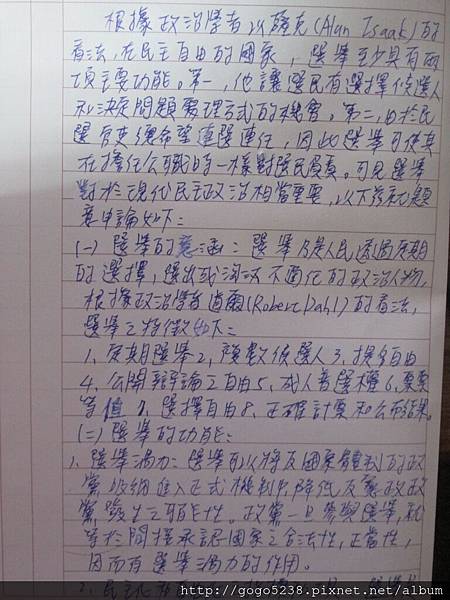 根據政治學者以薩克(Alan Isaak)的
看法,在民主自由的國家,選舉至少具有兩
項主要功能。第一,他讓選民有選擇候選人
和決定問題處理方式的機會。第二,由於民
選官吏總希望連選連任,因此選舉可使其
在擔任公職時一樣對選民負責。可見選舉
對於現代民主政治相當重要,以下茲就題
意申論如下:
(一)選舉的意涵:選舉乃是人民透過定期
的選擇,選出或淘汰不適任的政治人物,
根據政治學者道爾(Robert Dahl)的看法,
選舉之特徵如下:
1、定期選舉2、複數候選人3、提名自由
4、公開辯論之自由5、成人普選權6、票票
等值7、選擇自由8、正確計票和公布結果。
(二)選舉的功能:
1、選舉消力:選舉可以將反國家體制的政
黨,吸納進入正式機制中,降低反憲政政
黨發生之可能性。政黨一旦參與選舉,就
等於間接承認國家之合法性,正當性,
因而有選舉消力的作用。
2、民
http://gogo5238.pixnet.net/album